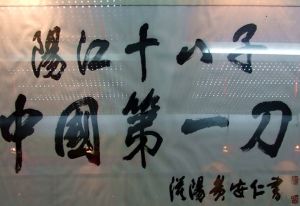 陽江十八子
中國第一刀
漠陽黄安仁書